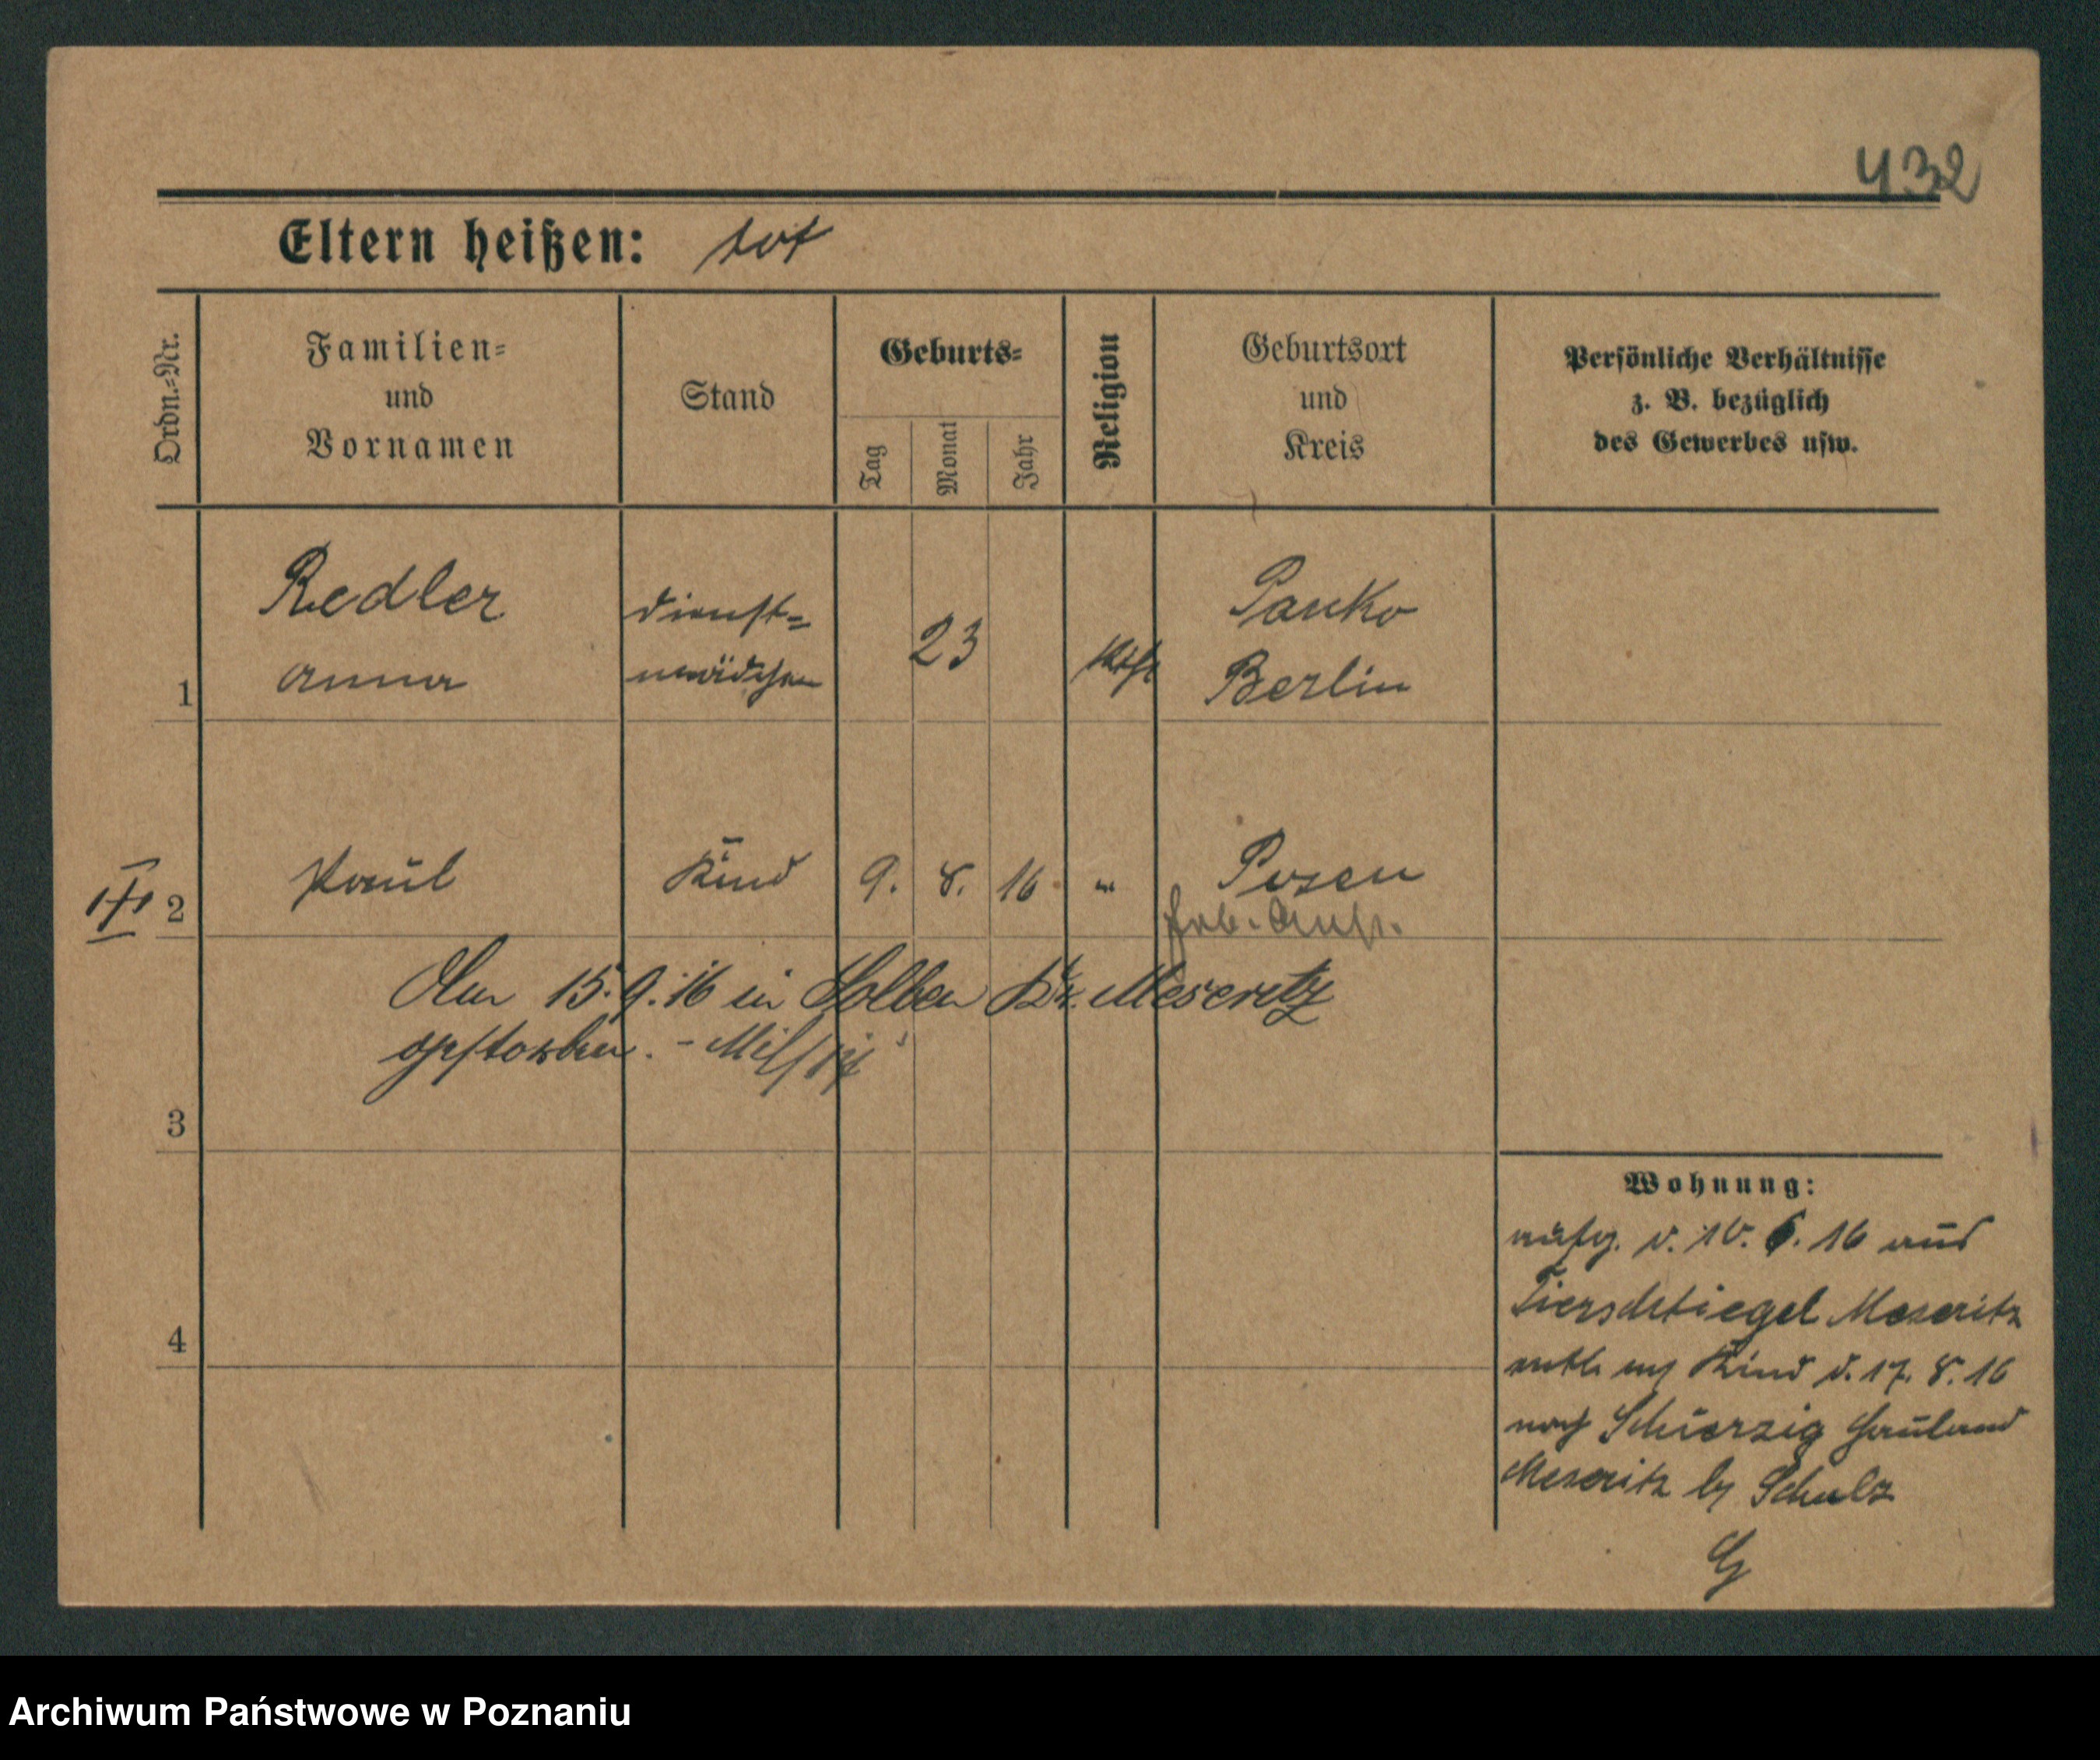 432
Eltern heißen: tot
Ordn.-Nr.
Familien-
und
Vornamen
Stand
Geburts-
Tag
Monat
Jahr
Religion
Geburtsort
und
Kreis
Persönliche Verhältnisse
z. B. bezüglich
des Gewerbes usw.
1
Redler
Anna
Dienst-
mädchen
23
kath
Panko
Berlin
2
Paul
Kind
9. 8. 16
"
Posen
Am 15.9.16 in Solben Kr. Meseritz
gestorben. -
3
4
Wohnung:
zug. v. 10. 6. 16 aus
Tierschtiegel Meseritz
Kind d. 17. 8. 16
nach Schierzig Hauland
Meseritz by Schulz
Archiwum Państwowe w Poznaniu